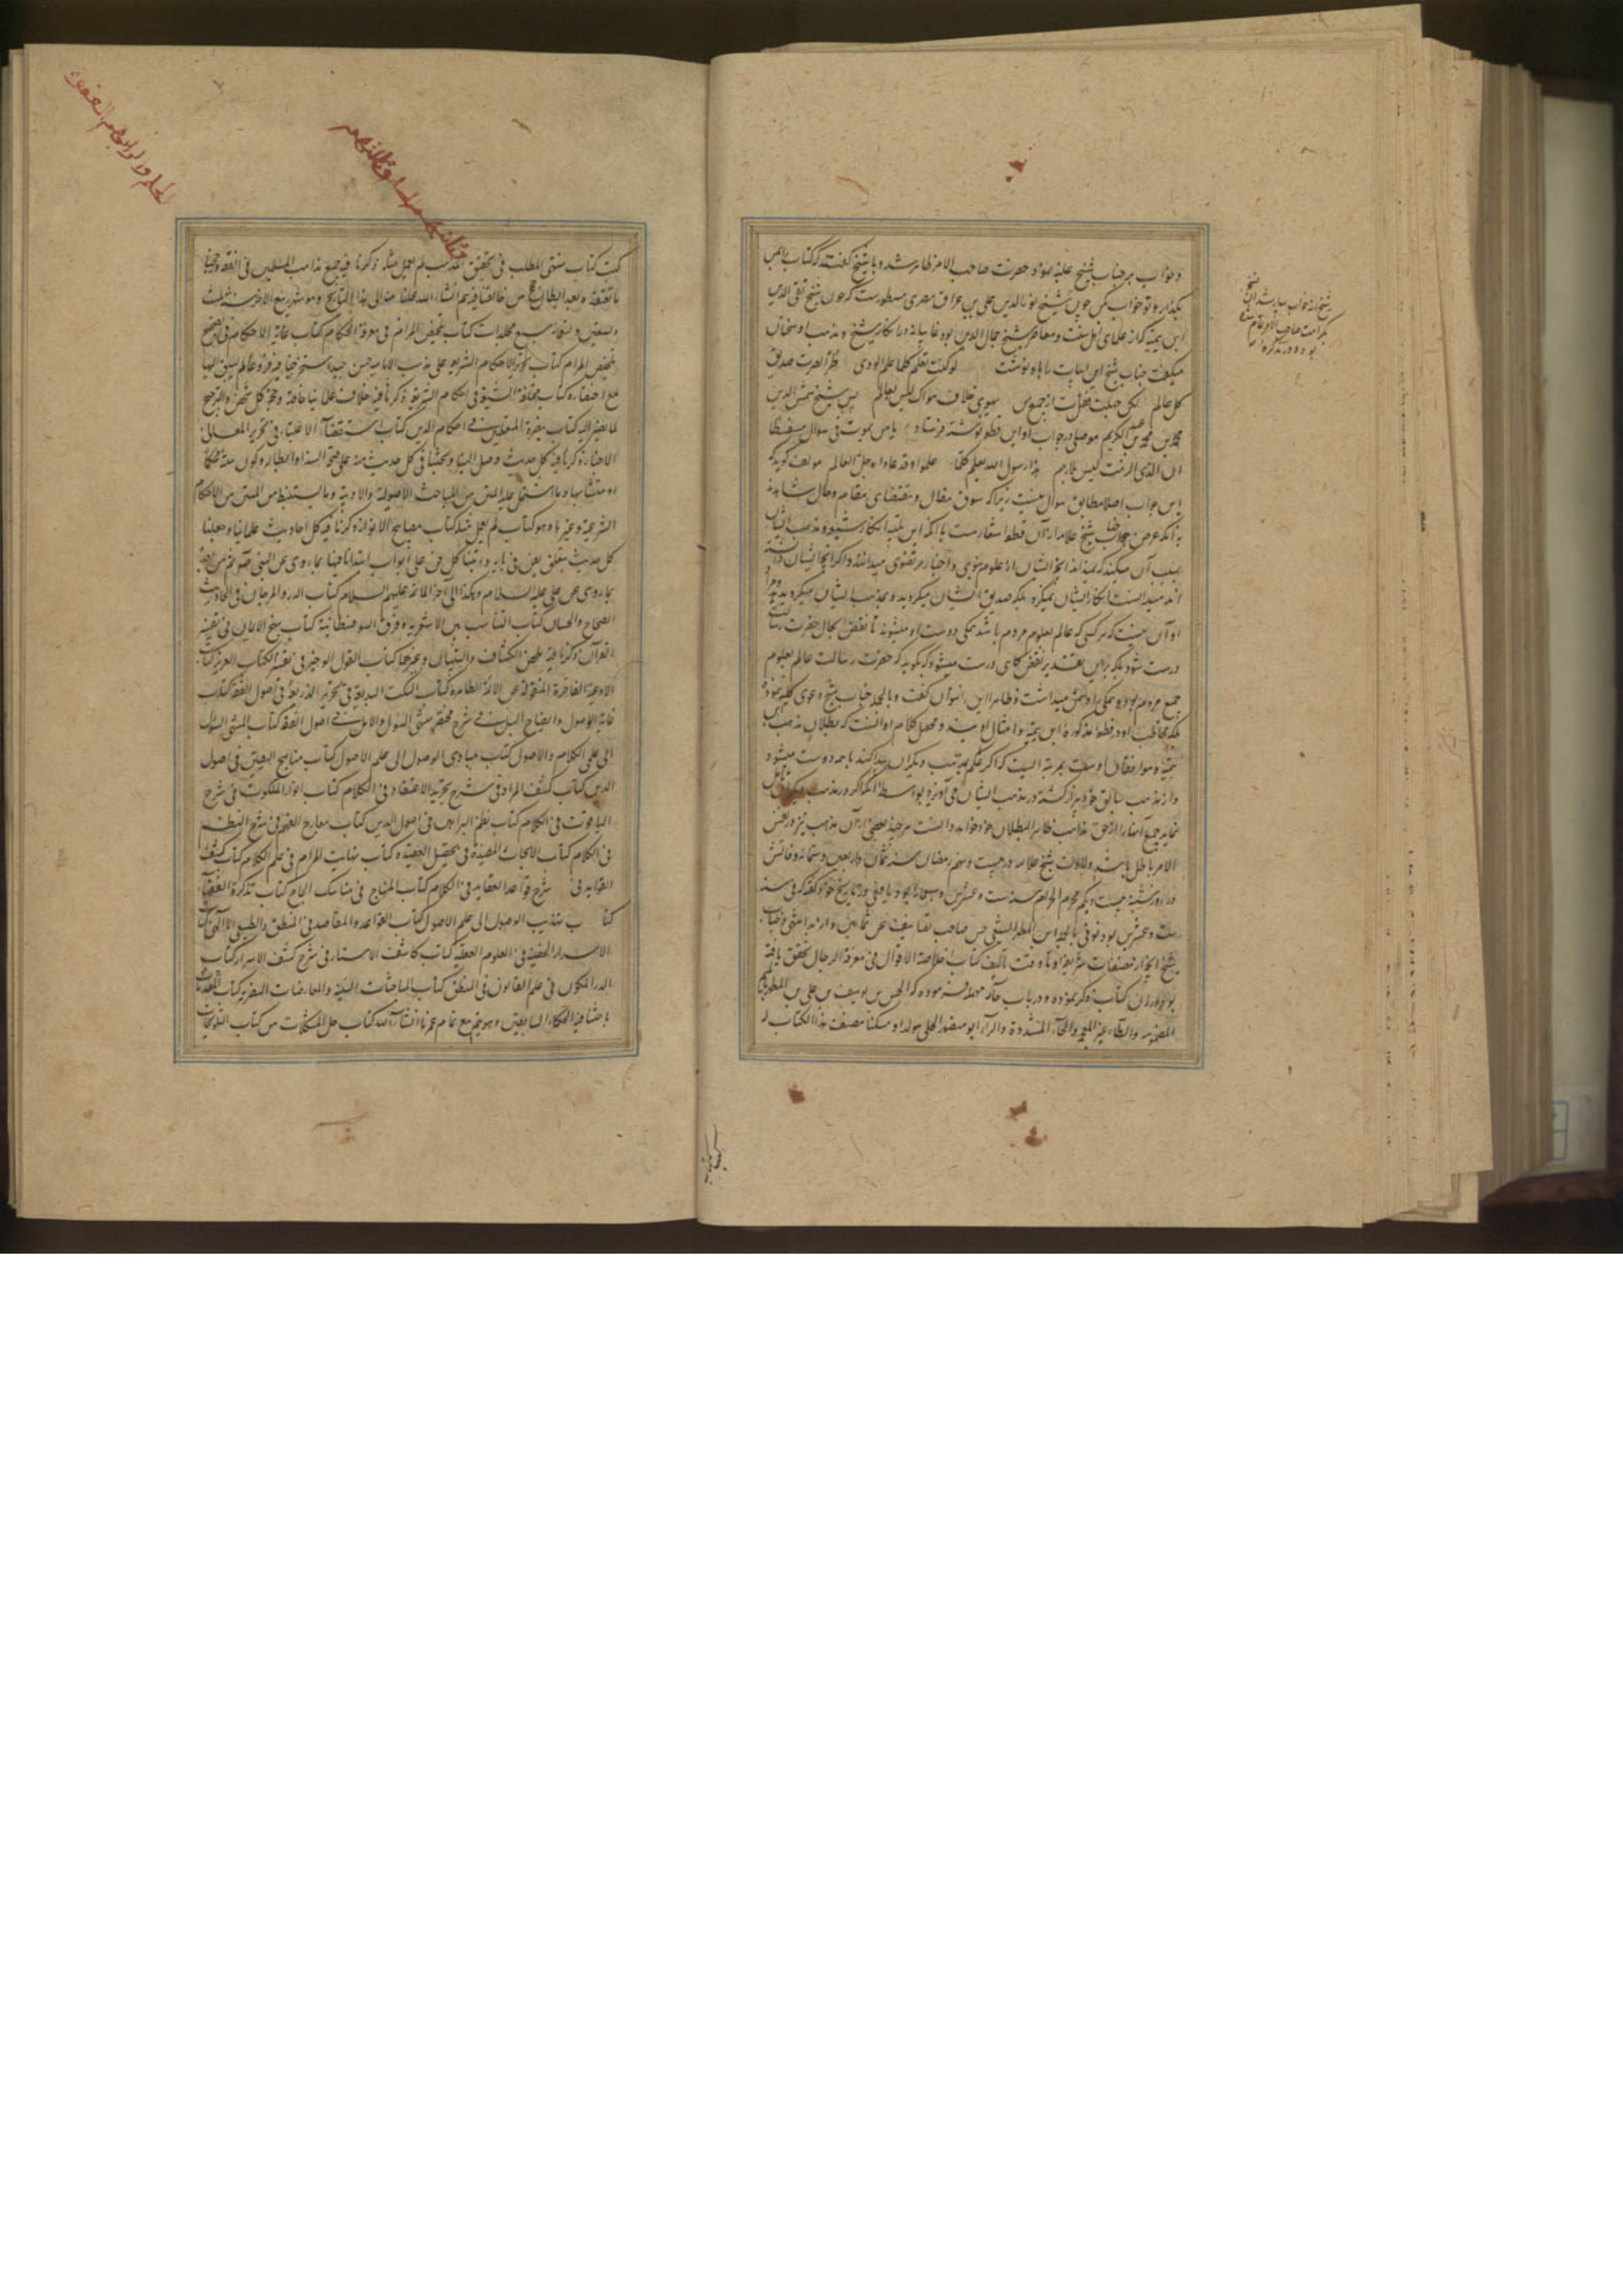 و خواب بر جناب شیخ غلبه نمود حضرت صاحب الامر ظاهر شد و با شیخ گفتند که کتاب را بمن
بگذار و تو خواب کن چون شیخ نور الدین علی بن عراق مصری مسطورست که چون شیخ تقی الدین
ابن تیمیه که از علمای اهل سنت و معاصر شیخ جمال الدین بوده غایبانه در انکار شیخ و مذهب او سخنان
میگفت جناب شیخ این ابیات را باو نوشت لو کنت تعلم کلما علم الوری طرا لصرت صدیق
کل عالم لکن جهلت فقلت ان جمیع من یهوی خلاف هواک لیس بعالم پس شیخ شمس الدین
محمد بن محمد بن عبد الکریم موصلی در جواب او این قطعه نوشته فرستاد یا من یموه فی سؤال مسفسطا
ان الذی الزمت لیس بلازم هذا رسول الله یعلم کلما علموا وقد عاداه جل العالم مولف گوید که
این جواب اصلا مطابق سؤال نیست زیرا که سوق مقال و مقتضای مقام و حال شاهدند
به آنکه عرض جناب شیخ علامه از آن قطعه اشعارست با آنکه ابن تیمیه انکار شیعه و مذهب ایشان
بسبب آن میکند که نمیداند آنچه ایشان از علوم نبوی و اخبار مرتضوی میدانند و اگر آنچه ایشان دانسته
اند میدانست انکار ایشان نمیکرد بلکه صدیق ایشان میگردید و بمذهب ایشان میگروید
او آن نیست که هر کسی که عالم بعلوم مردم باشد همگی دوست او میشوند تا نقض بحال حضرت رسالت
درست شود بلکه براین تقدیر نقض گاهی درست میشود که بگوید که حضرت رسالت عالم بعلوم
جمیع مردم بود و همگی را دشمن میداشت و ظاهرا این را نتوان گفت و بالجمله جناب شیخ دعوی کلیه نمود
بلکه مخاطب او در قطعه مذکوره ابن تیمیه و امثال اویند و محصل کلام او آنست که بطلان مذهب
تیمیه و موافقان او ست بمرتبه ایست که اگر علم بمذهب دیگران پیدا کند با همه دوست میشود
و از مذهب سابق خود بیزار گشته در مذهب ایشان می آویزد بواسطه آنکه اگر در مذهب دیگران تامل
نماید جمیع آنها را از حق مذاهب ظاهر البطلان خود خواهد دانست هر چند بعضی از آن مذهب نیز در نفس
الامر باطل باشد و ولادت شیخ علامه در بیست و نهم رمضان سنه ثمان و اربعین و ستمائه و فاتش
در روز شنبه بیست و یکم محرم الحرام سنه ست و عشرین و سبعمائه بود و یافعی در تاریخ خود گفته که در سنه
ست و عشرین بود توفی بالحله ابن المطهر الشیعی حسن صاحب تصانیف عن ثمانین و ازید انتهی و جناب
شیخ آنچه از مصنفات شریفه او تا وقت تالیف کتاب خلاصة الاقوال فی معرفة الرجال تحقق یافته
بود در آن کتاب ذکر نموده و در باب حاء مهمله فرموده که الحسن بن یوسف بن علی بن المطهر بالمیم
المضمومه والطاء غیر المعجمه والهاء المشددة والراء ابو منصور الحلی مولدا و مسکنا مصنف هذا الکتاب له
شیخ از خواب بیدار شد آن نسخ
بکرامت صاحب الامر تمام شده
بود
کتب کتاب منتهی المطلب فی تحقیق المذهب لم یعمل مثله ذکرنا فیه جمیع مذاهب المسلمین فی الفقه و رجحنا
ما نعتقده بعد ابطال حجج من خالفنا فیه یتم انشاء الله عملنا منه الی هذا التاریخ وهو شهر ربیع الاخر سنه ثلث
وتسعین و ستمائه سبع مجلدات کتاب تلخیص المرام فی معرفة الاحکام کتاب غایة الاحکام فی تصحیح
تلخیص المرام کتاب تحریر الاحکام الشرعیه علی مذهب الامامیه حسن جید استخرجنا فیه فروعا لم نسبق الیها
مع اختصاره کتاب مختلف الشیعة فی احکام الشریعة ذکرنا فیه خلاف علمائنا خاصة و حجة کل شخص والترجیح
لما نصیر الیه کتاب تبصرة المتعلمین فی احکام الدین کتاب استقصاء الاعتبار فی تحریر معانی
الاخبار ذکرنا فیه کل حدیث وصل الینا و بحثنا فی کل حدیث منه علی صحة السند او ابطاله و کون متنه محکما
او متشابها و ما اشتمل علیه المتن من المباحث الاصولیة والادبیة و ما یستنبط من المتن من الاحکام
الشرعیة و غیرها وهو کتاب لم یعمل مثله کتاب مصابیح الانوار ذکرنا فیه کل احادیث علمائنا و جعلنا
کل حدیث یتعلق بفن فی بابه و رتبنا کل فن علی ابواب ابتدانا فیها بما روی عن النبی صلعم ثم من بعده
بما روی عن علی علیه السلام و هکذا الی آخر الائمة علیهم السلام کتاب الدر والمرجان فی الاحادیث
الصحاح والحسان کتاب التناسب بین الاشعریة و فرق السوفسطائیة کتاب نهج الایمان فی تفسیر
القرآن ذکرنا فیه ملخص الکشاف والتبیان و غیرهما کتاب القول الوجیز فی تفسیر الکتاب العزیز کتاب
الادعیة الفاخرة المنقولة عن الائمة الطاهره کتاب النکت البدیعة فی تحریر الذریعة فی اصول الفقه کتاب
غایة الوصول و ایضاح السبل فی شرح مختصر منتهی السؤل والامل فی اصول الفقه کتاب منتهی السؤل
الی علمی الکلام والاصول کتاب مبادی الوصول الی علم الاصول کتاب مناهج الیقین فی اصول
الدین کتاب کشف المراد فی شرح تجرید الاعتقاد فی الکلام کتاب انوار الملکوت فی شرح
الیاقوت فی الکلام کتاب نظم البراهین فی اصول الدین کتاب معارج الفهم فی شرح النظم
فی الکلام کتاب الابحاث المفیدة فی تحصیل العقیده کتاب نهایت المرام فی علم الکلام کتاب کشف
الفواید فی شرح قواعد العقاید فی الکلام کتاب المنهاج فی مناسک الحاج کتاب تذکرة الفقهاء
کتاب تهذیب الوصول الی علم الاصول کتاب القواعد والمقاصد فی المنطق والطبیعی والالهی کتاب
الاسرار الخفیة فی العلوم العقلیه کتاب کاشف الاستار فی شرح کشف الاسرار کتاب
الدر المکنون فی علم القانون فی المنطق کتاب المباحثات السنیة والمعارضات النصیریه کتاب المقاومات
باحثنا فیه الحکماء السابقین وهو یتم مع تمام عمرنا انشاء الله کتاب حل المشکلات من کتاب التلویحات